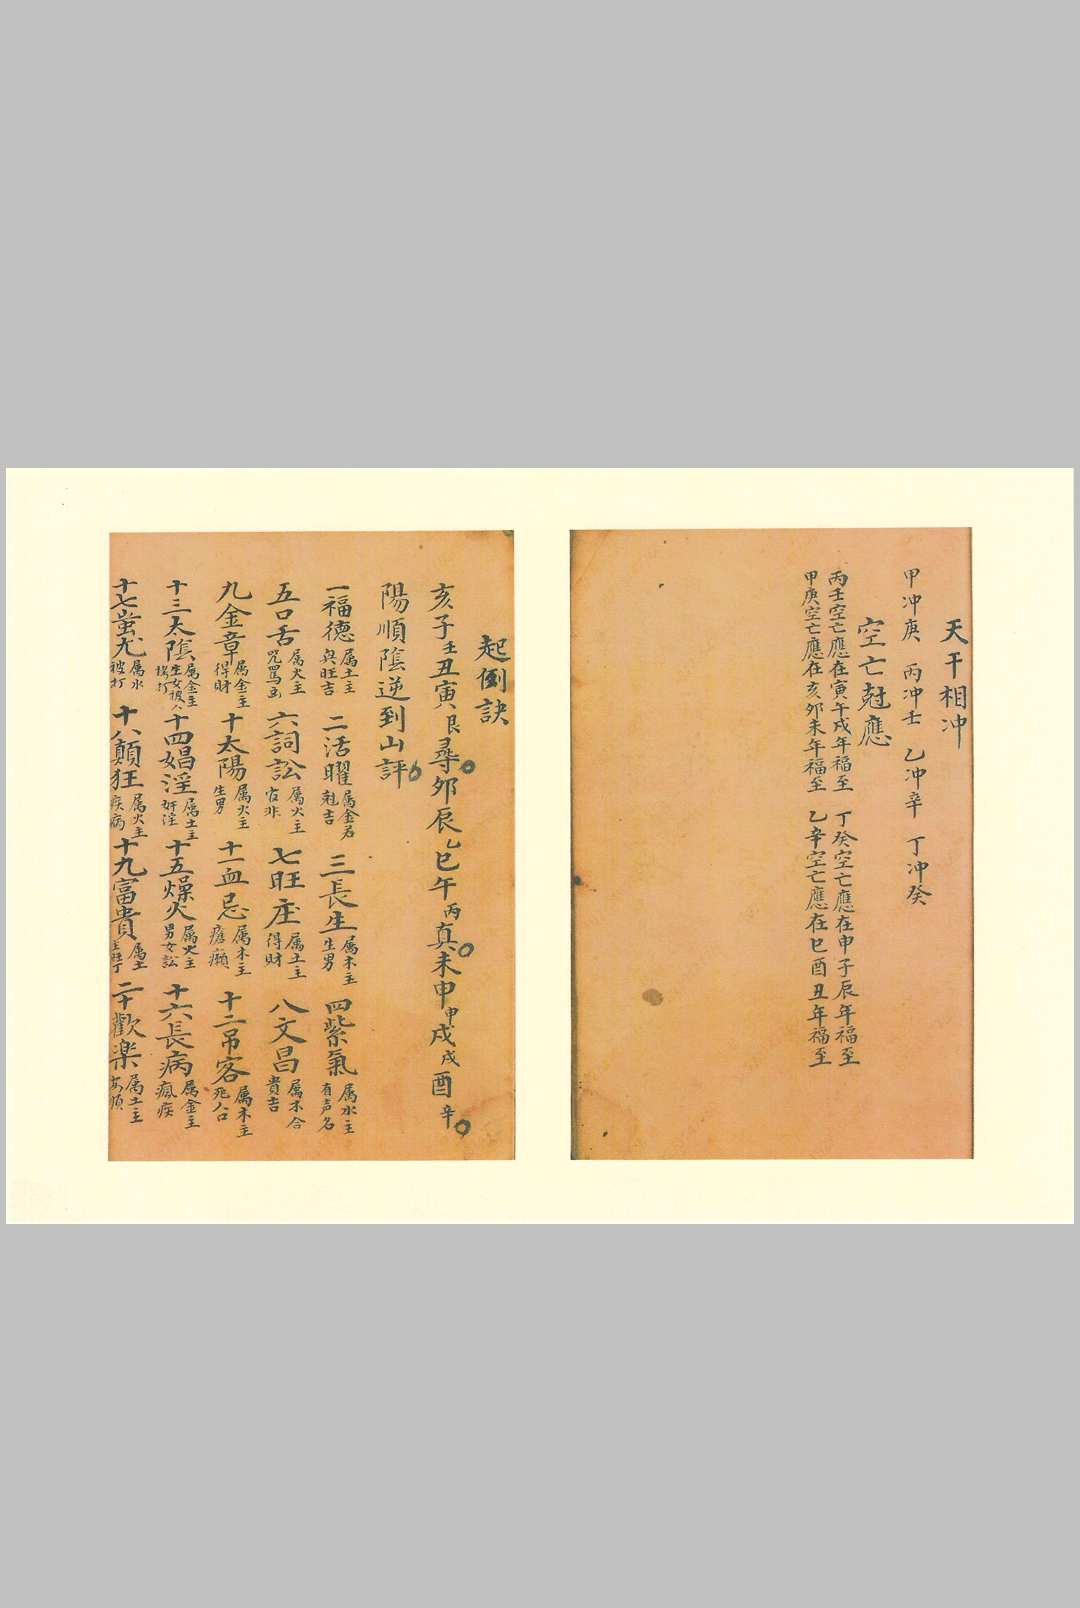 天干相冲
甲冲庚　丙冲壬　乙冲辛　丁冲癸
空亡尅應
丙壬空亡應在寅午戌年福至　丁癸空亡應在申子辰年福至
甲庚空亡應在亥卯未年福至　乙辛空亡應在巳酉丑年福至
起倒訣
亥子壬丑寅艮尋卯辰乙巳午丙真未申甲戌戌酉辛
陽順陰逆到山評
一福德属土主興旺吉　二活曜属金若尅吉　三長生属木主生男　四紫氣属水主有声名
五口舌属火主咒罵凶　六詞訟属火主官非　七旺庄属土主得財　八文昌属木合貴吉
九金章属金主得財　十太陽属火主生男　十一血忌属木主瘡癩　十二吊客属木主死人口
十三太陰属金主生女被人拐打　十四娼淫属土主奸淫　十五燥火属火主男女訟　十六長病属金主瘋疾
十七蚩尤属水被打　十八顛狂属火主疾病　十九富貴属土主旺丁　二十歡楽属土主安順